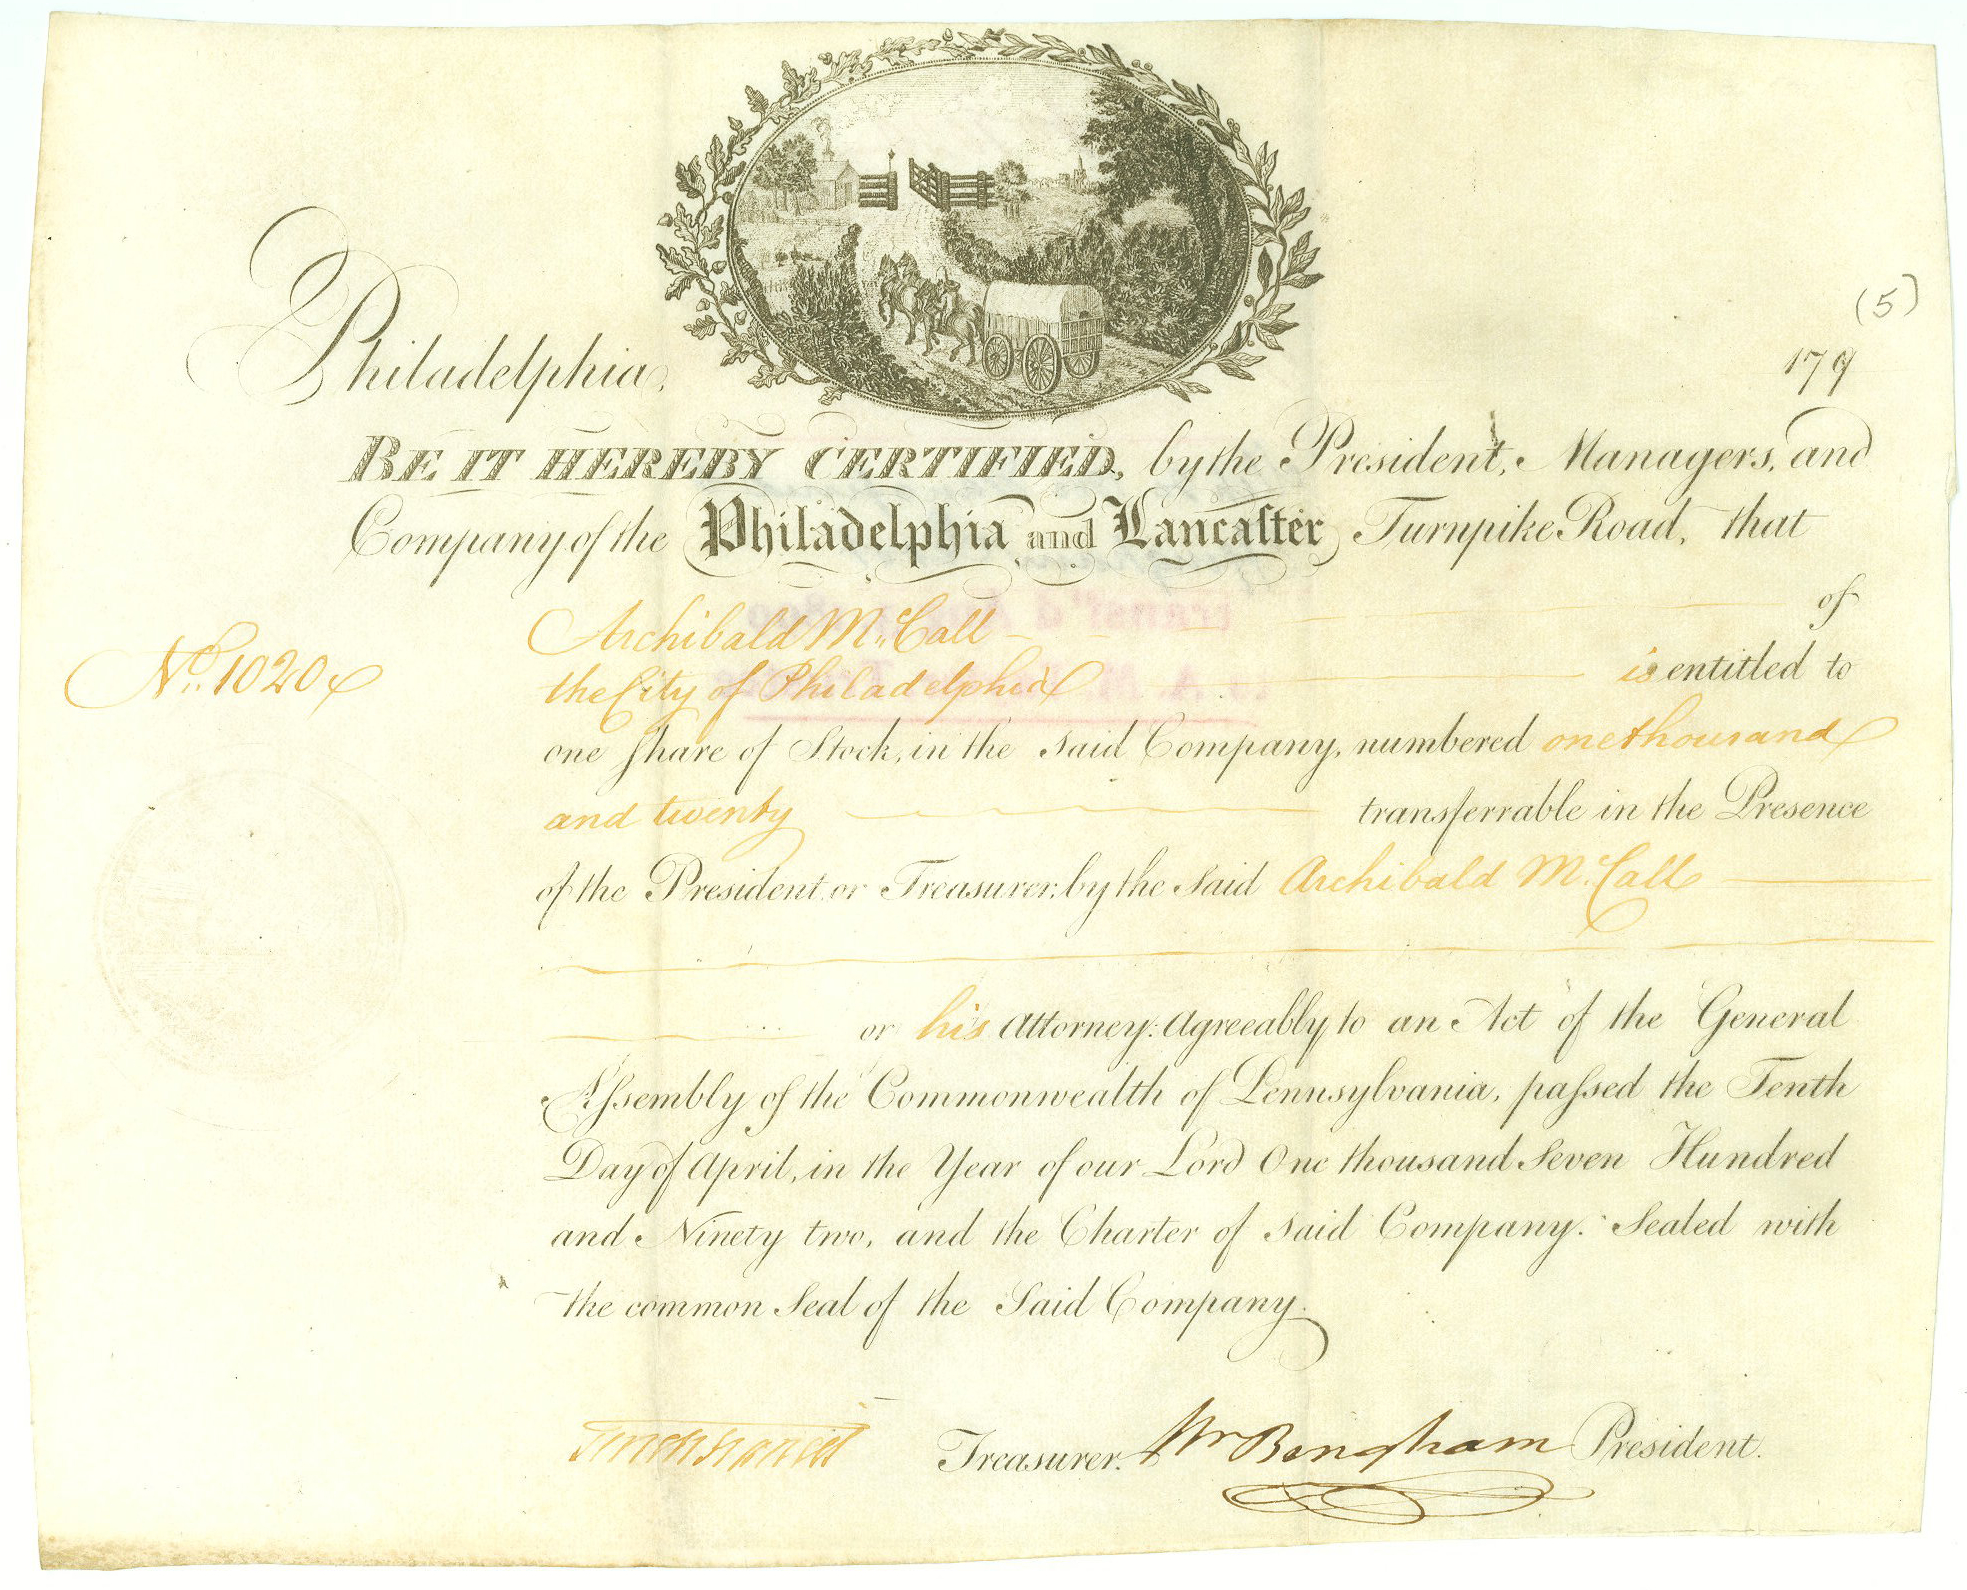 (5)
Philadelphia, 179
BE IT HEREBY CERTIFIED, by the President, Managers, and
Company of the Philadelphia and Lancaſter Turnpike Road, that
Archibald McCall of
No. 1020
the City of Philadelphia is entitled to
one ſhare of Stock, in the said Company, numbered one thousand
and twenty transferrable in the Presence
of the President or Treasurer, by the said Archibald McCall
or his Attorney: Agreeably to an Act of the General
Aſsembly of the Commonwealth of Pennsylvania, paſsed the Tenth
Day of April, in the Year of our Lord One thousand Seven Hundred
and Ninety two, and the Charter of said Company. Sealed with
the common Seal of the Said Company.
Treasurer. Wm Bingham President.